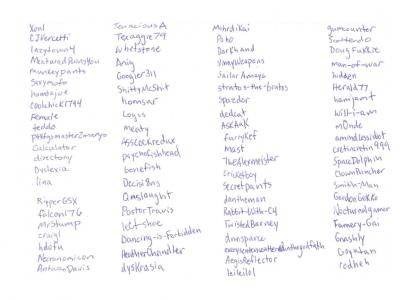 Xenl
CJVercetti
lazytown4
MeatwadPwnsYou
monkeypants
Saxymofo
hombajue
CoolchickC1744
Female
feddo
Calculator
directory
Dyslexia
lina
RipperGSX
falcon176
MrStump
craigl
hdofu
Necronomicon
AntwanDavis
TenaciousA
Texaggie79
Whetstone
Anig
Googler311
ShittyMcShit
homsar
Logus
meaty
ASSCOCKredux
psychofishhead
bonefish
Decisi8ns
Onslaught
PastorTravis
left-shoe
Dancing-is-Forbidden
HeatherChandler
dysKrasia
MohrdiKai
Pobo
Darkhand
Vinnyweapons
Sailor Amaya
stratos-the-bratos
Spazdor
dedcat
AskAak
furryKef
Mast
TheAlexmeister
Cricketboy
Secretpants
dantheman
Rabbit-With-C4
TwistedBarney
dnnsparce
AegisReflector
leileilol
gumcounter
Scottendo
DougFukkie
man-of-war
hidden
Herald77
hamjamt
will-i-am
m0nde
amindlessidiot
cretincretin999
SpaceDolphin
ClownPuncher
Smith-Man
GordonGekko
Nocturnalgamer
Famery-Gai
Gnashly
Goyatan
redheh